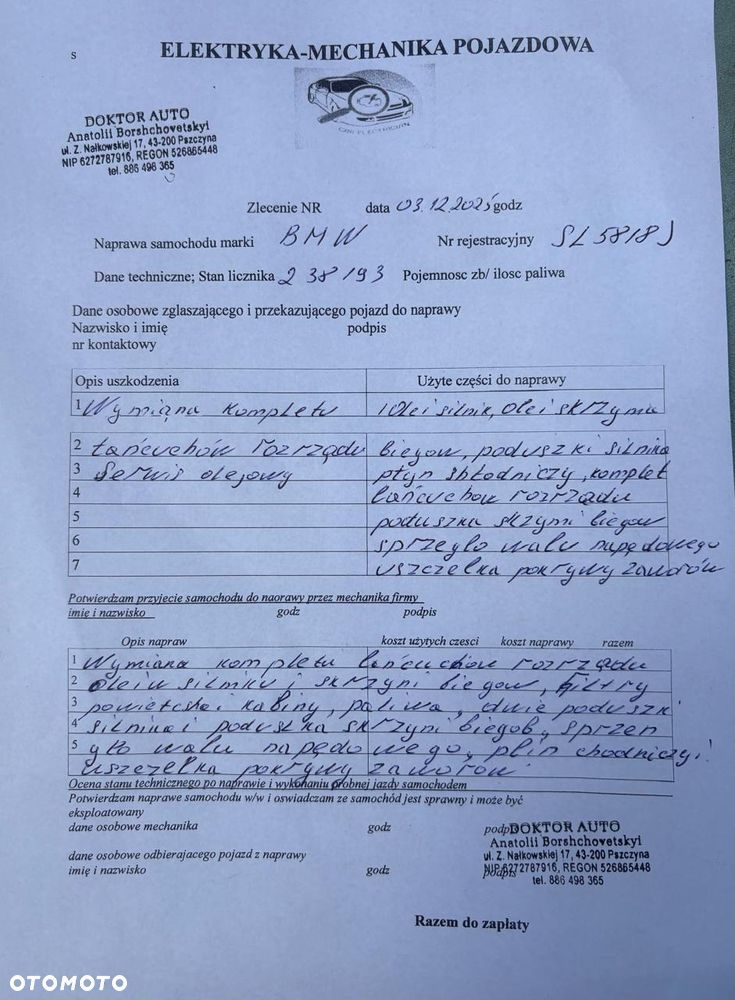 s
ELEKTRYKA-MECHANIKA POJAZDOWA
CAR ELECTRICIAN
DOKTOR AUTO
Anatolii Borshchovetskyi
ul. Z. Nałkowskiej 17, 43-200 Pszczyna
NIP 6272787916, REGON 526865448
tel. 886 498 365
Zlecenie NR data 03.12.2025 godz
Naprawa samochodu marki BMW Nr rejestracyjny SL5818J
Dane techniczne; Stan licznika 238193 Pojemnosc zb/ ilosc paliwa
Dane osobowe zglaszającego i przekazującego pojazd do naprawy
Nazwisko i imię podpis
nr kontaktowy
Opis uszkodzenia Użyte części do naprawy
1 Wymiąna kompletu 1olei silnik, olei skrzynia
2 łańcuchów rozrządu biegow, poduszki silnika
3 Serwis olejowy płyn shłodniczy, komplet
4 łańcuchow rozrządu
5 poduszka skrzyni biegow
6 sprzęgło wału napędowego
7 uszczelka pokrywy zaworów
Potwierdzam przyjecie samochodu do naorawy przez mechanika firmy
imię i nazwisko godz podpis
Opis napraw koszt użytych czesci koszt naprawy razem
1 Wymiana kompletu łańcuchów rozrządu
2 olei w silniku i skrzyni biegow, filtry
3 powietsha i kabiny, paliwa, dwie poduszki
4 silnika i poduszka skrzyni biegob, sprzen
5 gło wału napędowego, plin chodniczyi
uszczelka pokrywy zaworów
Ocena stanu technicznego po naprawie i wykonaniu próbnej jazdy samochodem
Potwierdzam naprawe samochodu w/w i oswiadczam ze samochód jest sprawny i może być
eksploatowany
dane osobowe mechanika godz podpis
DOKTOR AUTO
Anatolii Borshchovetskyi
ul. Z. Nałkowskiej 17, 43-200 Pszczyna
NIP 6272787916, REGON 526865448
tel. 886 498 365
dane osobowe odbierajacego pojazd z naprawy
imię i nazwisko godz podpis
Razem do zapłaty
OTOMOTO